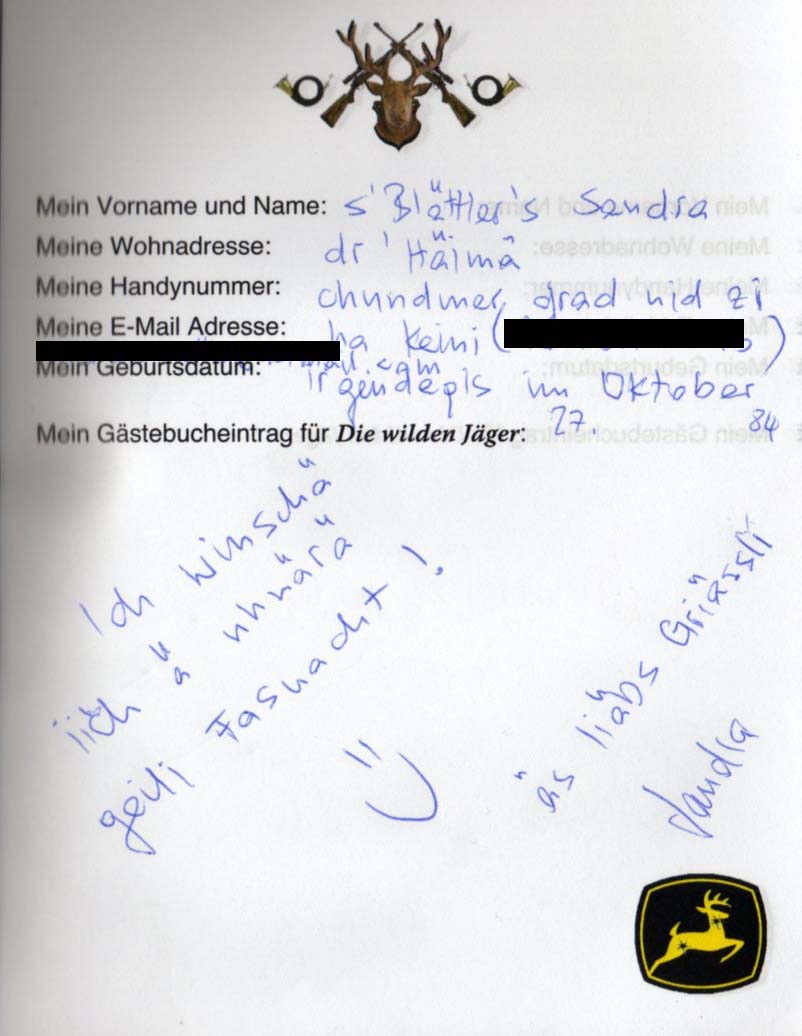 Mein Vorname und Name: s'Blättler's Sandra
Meine Wohnadresse: dr' Häimä
Meine Handynummer: chundmer grad nid zi
Meine E-Mail Adresse: ha keini (
Mein Geburtsdatum: irgendepis im Oktober
27. 84
Mein Gästebucheintrag für Die wilden Jäger:
Ich winschä
iich ä uhuärä
geili Fasnacht!
äs liäbs Griässli
Sandra